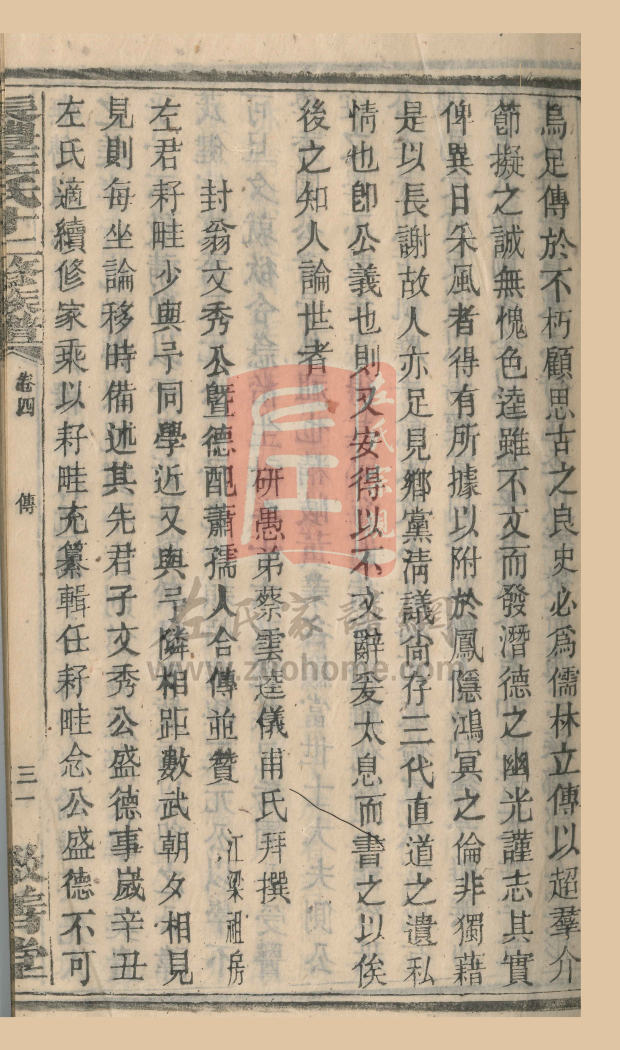 烏足傳於不朽顧思古之良史必爲儒林立傳以超羣介
節擬之誠無愧色逵雖不文而發潛德之幽光謹志其實
俾異日采風者得有所據以附於鳳隱鴻冥之倫非獨藉
是以長謝故人亦足見鄉黨淸議尙存三代直道之遺私
情也卽公義也則又安得以不文辭爰太息而書之以俟
後之知人論世者
研愚弟蔡雲逵儀甫氏拜撰
封翁文秀公曁德配蕭孺人合傳並贊 江梁祖房
左君耔畦少與予同學近又與予隣相距數武朝夕相見
見則每坐論移時備述其先君子文秀公盛德事嵗辛丑
左氏適續修家乘以耔畦充纂輯任耔畦念公盛德不可
左氏十二修族譜
卷四
傳
三一
善堂
左氏家譜網
www.zuohome.com